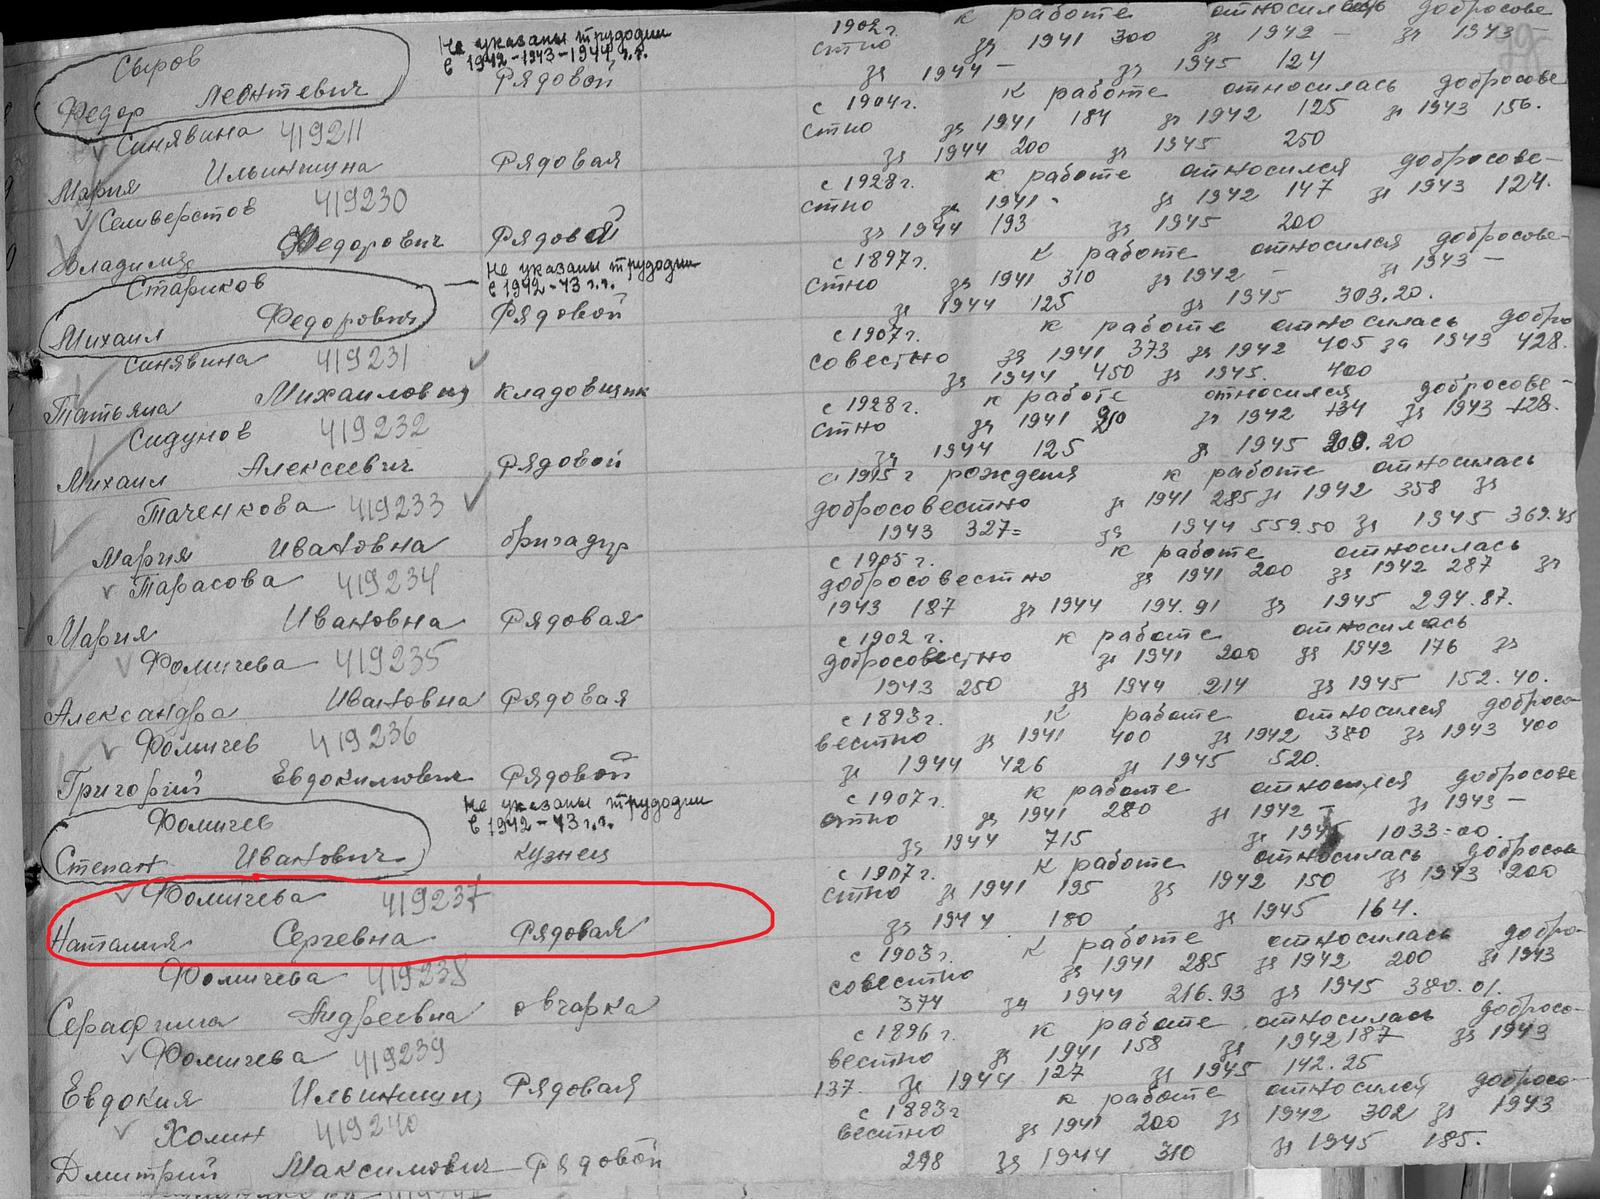 Сыров
Федор Леонтевич
Не указаны трудодни
с 1942-1943-1944 г.г.
Рядовой
1902 г. к работе относилась добросове
стно за 1941 300 за 1942 — за 1943 —
за 1944 — за 1945 124
Синявина 419211
Мария Ильинична Рядовая
с 1904 г. к работе относилась добросове-
стно за 1941 184 за 1942 125 за 1943 156.
за 1944 200 за 1945 250
Селиверстов 419230
Владимир Федорович Рядовой
с 1928 г. к работе относился добросове-
стно за 1941 - за 1942 147 за 1943 124.
за 1944 193 за 1945 200
Стариков
Михаил Федорович
— Не указаны трудодни
с 1942-43 г.г.
Рядовой
с 1897 г. к работе относился добросове-
стно за 1941 310 за 1942 — за 1943 —
за 1944 125 за 1945 303.20.
Синявина 419231
Татьяна Михаиловна кладовщик
с 1907 г. к работе относилась добро
совестно за 1941 373 за 1942 405 за 1943 428.
за 1944 450 за 1945. 400
Сидунов 419232
Михаил Алексеевич Рядовой
с 1928 г. к работе относился добросове-
стно за 1941 за 1942 134 за 1943 128.
за 1944 125 за 1945 200.20
Таченкова 419233
Мария Ивановна бригадир
с 1915 г рождения к работе относилась
добросовестно за 1941 285 за 1942 358 за
1943 327= за 1944 559.50 за 1945 369.45
Тарасова 419234
Мария Ивановна Рядовая
с 1905 г. к работе относилась
добросовестно за 1941 200 за 1942 287 за
1943 187 за 1944 194.91 за 1945 294.87.
Фомичева 419235
Александра Ивановна Рядовая
с 1902 г. к работе относилась
добросовестно за 1941 200 за 1942 176 за
1943 250 за 1944 214 за 1945 152.40.
Фомичев 419236
Григорий Евдокимович Рядовой
с 1893 г. к работе относился добросо-
вестно за 1941 400 за 1942 380 за 1943 400
за 1944 426 за 1945 520.
Фомичев
Степан Иванович
Не указаны трудодни
с 1942-43 г.г.
кузнец
с 1907 г. к работе относился добросове
стно за 1941 280 за 1942 — за 1943 —
за 1944 715 за 1945 1033-00.
Фомичева 419237
Наталия Сергевна Рядовая
с 1907 г. к работе относилась добросове
стно за 1941 195 за 1942 150 за 1943 200
за 1944. 180 за 1945 164.
Фомичева 419238
Серафима Андреевна овчарка
с 1903 г. к работе относилась добро-
совестно за 1941 285 за 1942 200 за 1943
374 за 1944 216.93 за 1945 380.01.
Фомичева 419239
Евдокия Ильинична Рядовая
с 1896 г. к работе относилась добросо-
вестно за 1941 158 за 1942 187 за 1943
137. за 1944 127 за 1945 142.25
Холин 419240
Дмитрий Максимович Рядовой
с 1893 г к работе относился добросо-
вестно за 1941 200 за 1942 302 за 1943
298 за 1944 310 за 1945 185.